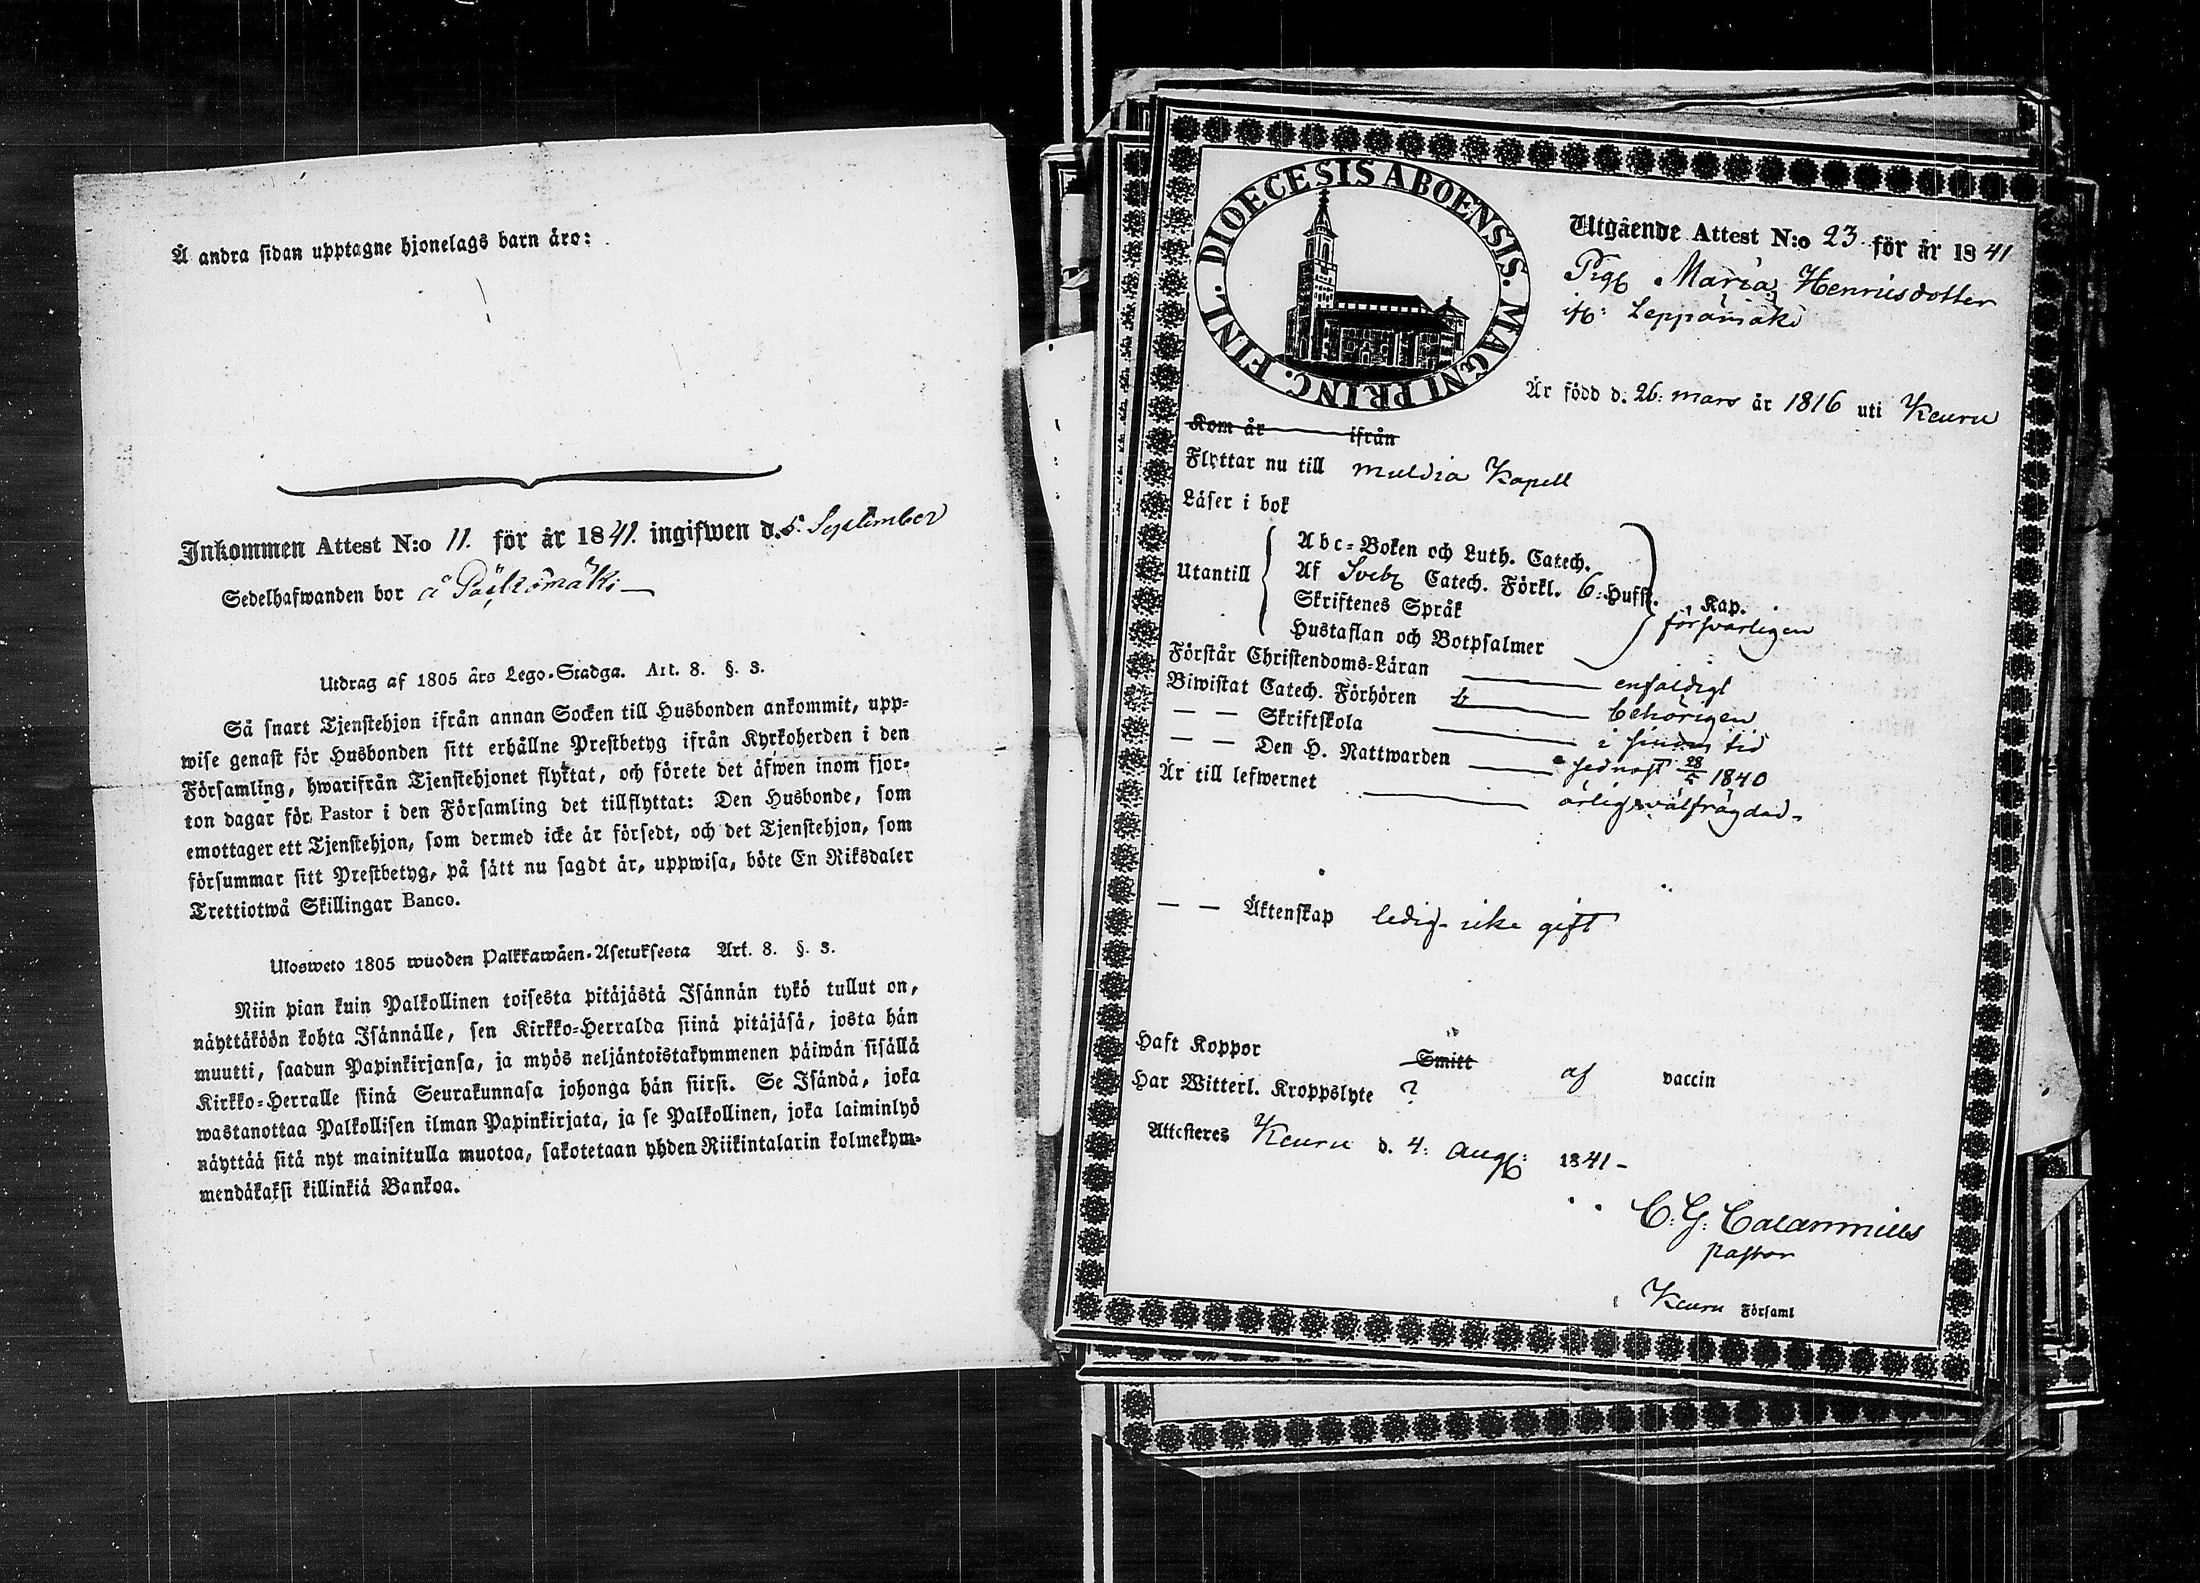 Å andra sidan upptagne hjonelags barn äro:
Inkommen Attest N:o 11. för år 1841. ingifwen d. 5. September
Sedelhafwanden bor å
Utdrag af 1805 års Lego-Stadga. Art. 8. §. 3.
Så snart Tjenstehjon ifrån annan Socken till Husbonden ankommit, upp-
wise genast för Husbonden sitt erhållne Prestbetyg ifrån Kyrkoherden i den
Församling, hwarifrån Tjenstehjonet flyktat, och förete det äfwen inom fjor-
ton dagar för Pastor i den Församling det tillflyttat: Den Husbonde, som
emottager ett Tjenstehjon, som dermed icke är försedt, och det Tjenstehjon, som
försummar sitt Prestbetyg, på sätt nu sagdt är, uppwisa, böte En Riksdaler
Trettiotwå Skillingar Banco.
Ulosweto 1805 wuoden Palkkawäen-Asetuksesta Art. 8. §. 3.
Niin pian kuin Palkollinen toisesta pitäjästä Isännän tykö tullut on,
näyttäköön kohta Isännälle, sen Kirkko-Herralda siinä pitäjäsä, josta hän
muutti, saadun Papinkirjansa, ja myös neljäntoistakymmenen päiwän sisällä
Kirkko-Herralle siinä Seurakunnasa johonga hän siirsi. Se Isändä, joka
wastanottaa Palkollisen ilman Papinkirjata, ja se Palkollinen, joka laiminlyö
näyttää sitä nyt mainitulla muotoa, sakotetaan yhden Riikintalarin kolmekym-
mendäkaksi killinkiä Bankoa.
DIOECESIS ABOENSIS. MAGNI PRINC. FINL.
Utgående Attest N:o 23 för år 1841
Pig. Maria Henricsdotter
ifr: Leppämäki
Är född d. 26. mars år 1816 uti Keuru
Kom år ifrån
Flyttar nu till muldia Kapell
Läser i bok
Utantill
Abc-Boken och Luth. Catech.
Af Sveb. Catech. Förkl. 6 Hufst. Kap.
Skriftenes Språk försvarligen
Hustaflan och Botpsalmer
Förstår Christendoms-Läran enfaldigt
Biwistat Catech. Förhören behörigen
— — Skriftskola i sinom tid
— — Den H. Nattwarden sednast 28/5 1840
Är till lefwernet ärlig, välfrägdad.
— — Äktenskap ledig. icke gift
Haft Koppor Smitt af vaccin
Har Witterl. Kroppslyte ?
Attesteres Keuru d. 4. Aug: 1841 -
C. G. Calamnius
Pastor
i Keuru Församl